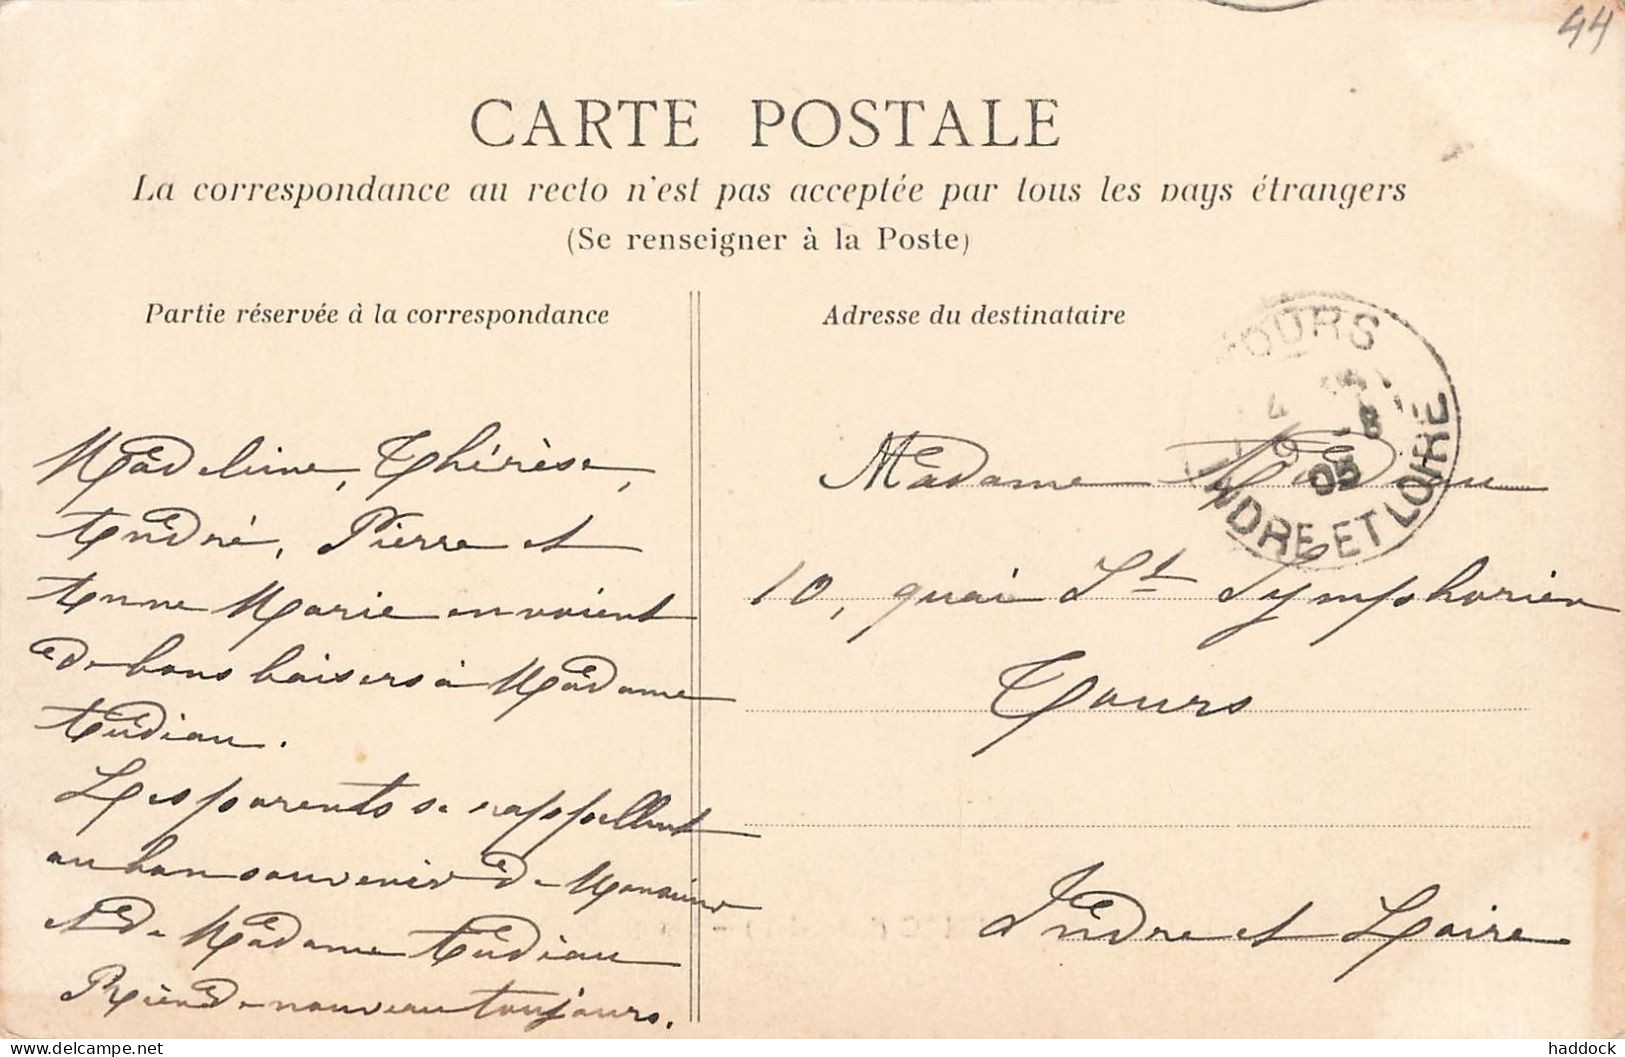 44
CARTE POSTALE
La correspondance au recto n'est pas acceptée par tous les pays étrangers
(Se renseigner à la Poste)
Partie réservée à la correspondance
Madeleine, Thérèse,
André, Pierre et
Anne Marie envoient
de bons baisers à Madame
Audiau.
Les parents se rappellent
au bon souvenir de Monsieur
et de Madame Audiau
Rien de nouveau toujours.
Adresse du destinataire
TOURS
05
INDRE ET LOIRE
Madame
10, quai St Symphorien
Tours
Indre et Loire
delcampe.net
haddock